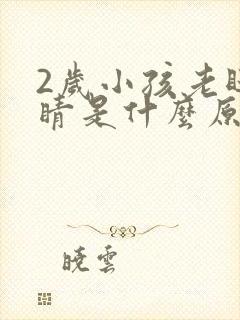 2歲小孩老眨
睛是什麼原
曉雲